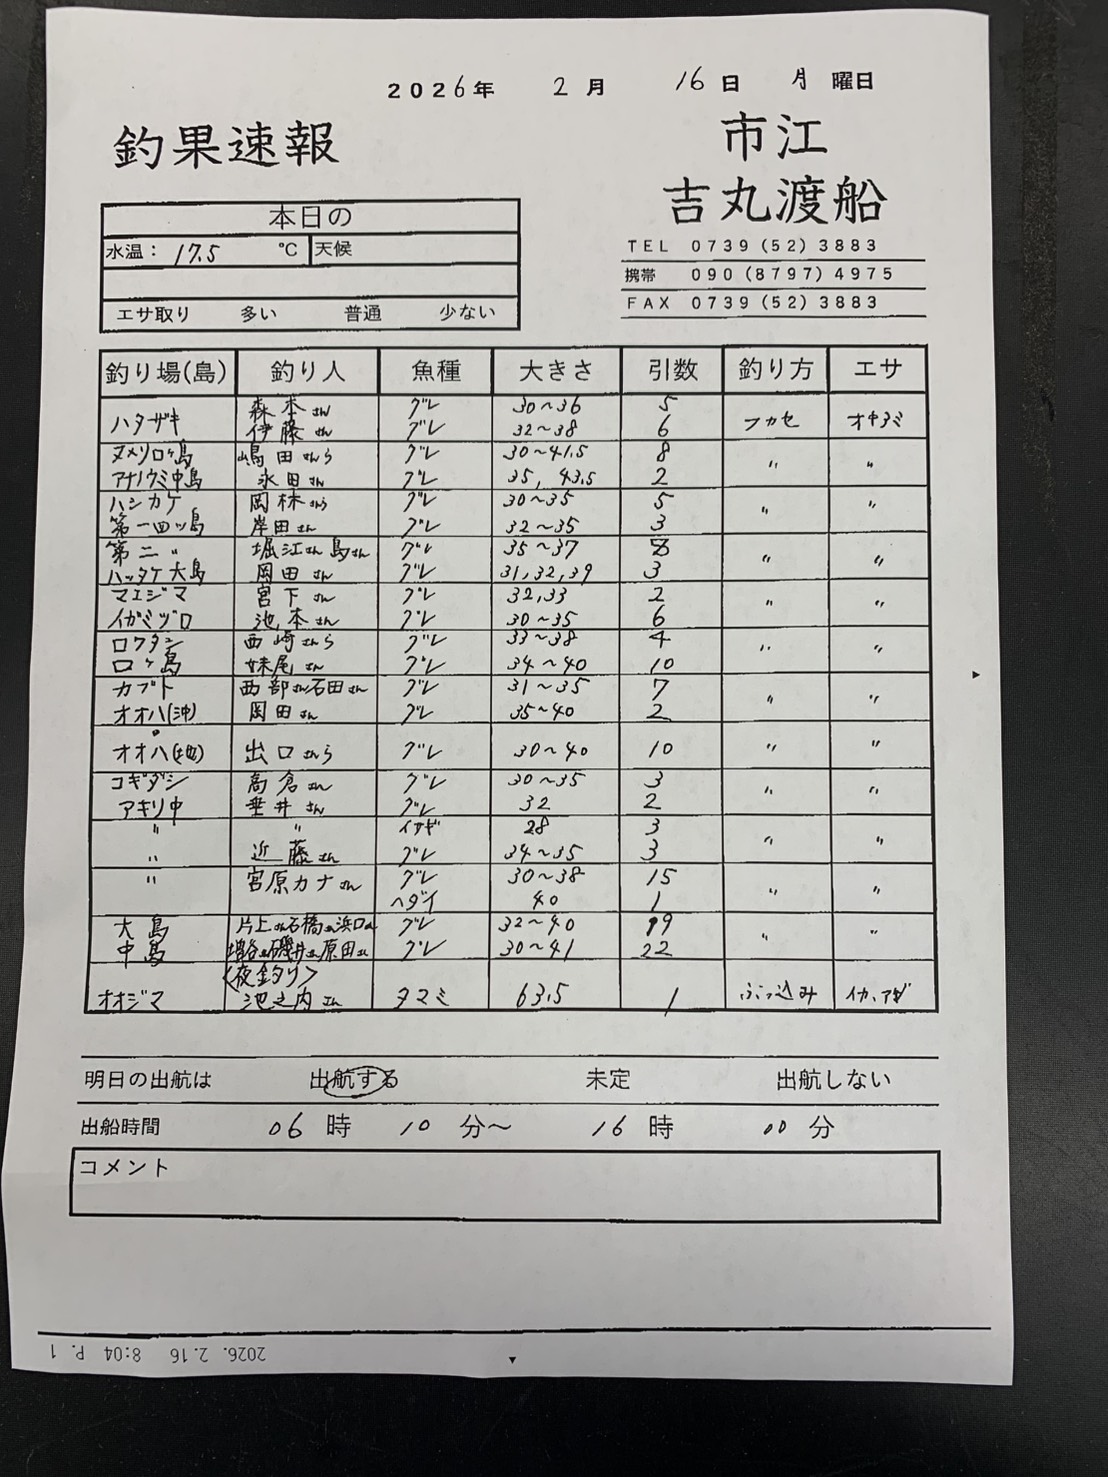 2026年 2月 16日 月曜日
釣果速報
市江
吉丸渡船
TEL 0739(52)3883
携帯 090(8797)4975
FAX 0739(52)3883
本日の
水温: 17.5 ℃ 天候
エサ取り 多い 普通 少ない
釣り場(島) 釣り人 魚種 大きさ 引数 釣り方 エサ
ハタザキ 森本さん グレ 30~36 5
伊藤さん グレ 32~38 6 フカセ オキアミ
ヌメリロヶ島 嶋田さんら グレ 30~41.5 8
アナノウミ中島 永田さん グレ 35, 43.5 2 〃 〃
ハシカケ 岡林さんら グレ 30~35 5
第一四ッ島 岸田さん グレ 32~35 3 〃 〃
第二 〃 堀江さん島さん グレ 35~37 8
ハッタケ大島 岡田さん グレ 31,32,39 3 〃 〃
マエジマ 宮下さん グレ 32,33 2
イガミヅロ 池本さん グレ 30~35 6 〃 〃
ロクタン 西崎さんら グレ 33~38 4
ロヶ島 妹尾さん グレ 34~40 10 〃 〃
カブト 西部さん石田さん グレ 31~35 7
オオバ(沖) 岡田さん グレ 35~40 2 〃 〃
オオバ(地) 出口さんら グレ 30~40 10 〃 〃
コギダシ 高倉さん グレ 30~35 3
アキリ中 垂井さん グレ 32 2 〃 〃
〃 〃 イサギ 28 3
〃 近藤さん グレ 34~35 3 〃 〃
〃 宮原カナさん グレ 30~38 15
ヘダイ 40 1 〃 〃
大島 片上さん石橋さん浜口さん グレ 32~40 19
中島 磯井さん原田さん グレ 30~41 22 〃 〃
<夜釣り>
オオジマ 池之内さん タマミ 63.5 1 ぶっ込み イカ、アジ
明日の出航は 出航する 未定 出航しない
出船時間 06時 10分~ 16時 00分
コメント
2026. 2.16 8:04 P. 1